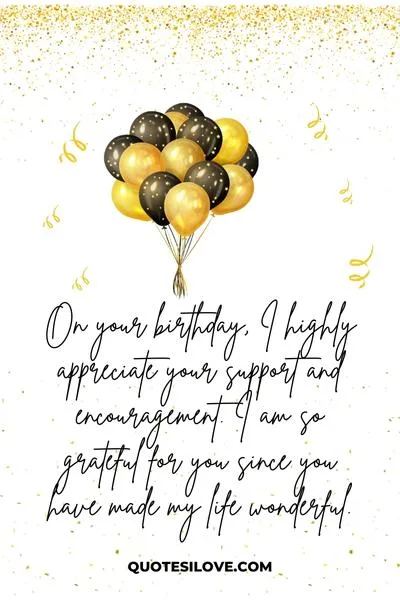 On your birthday, I highly
appreciate your support and
encouragement. I am so
grateful for you since you
have made my life wonderful.
QUOTESILOVE.COM